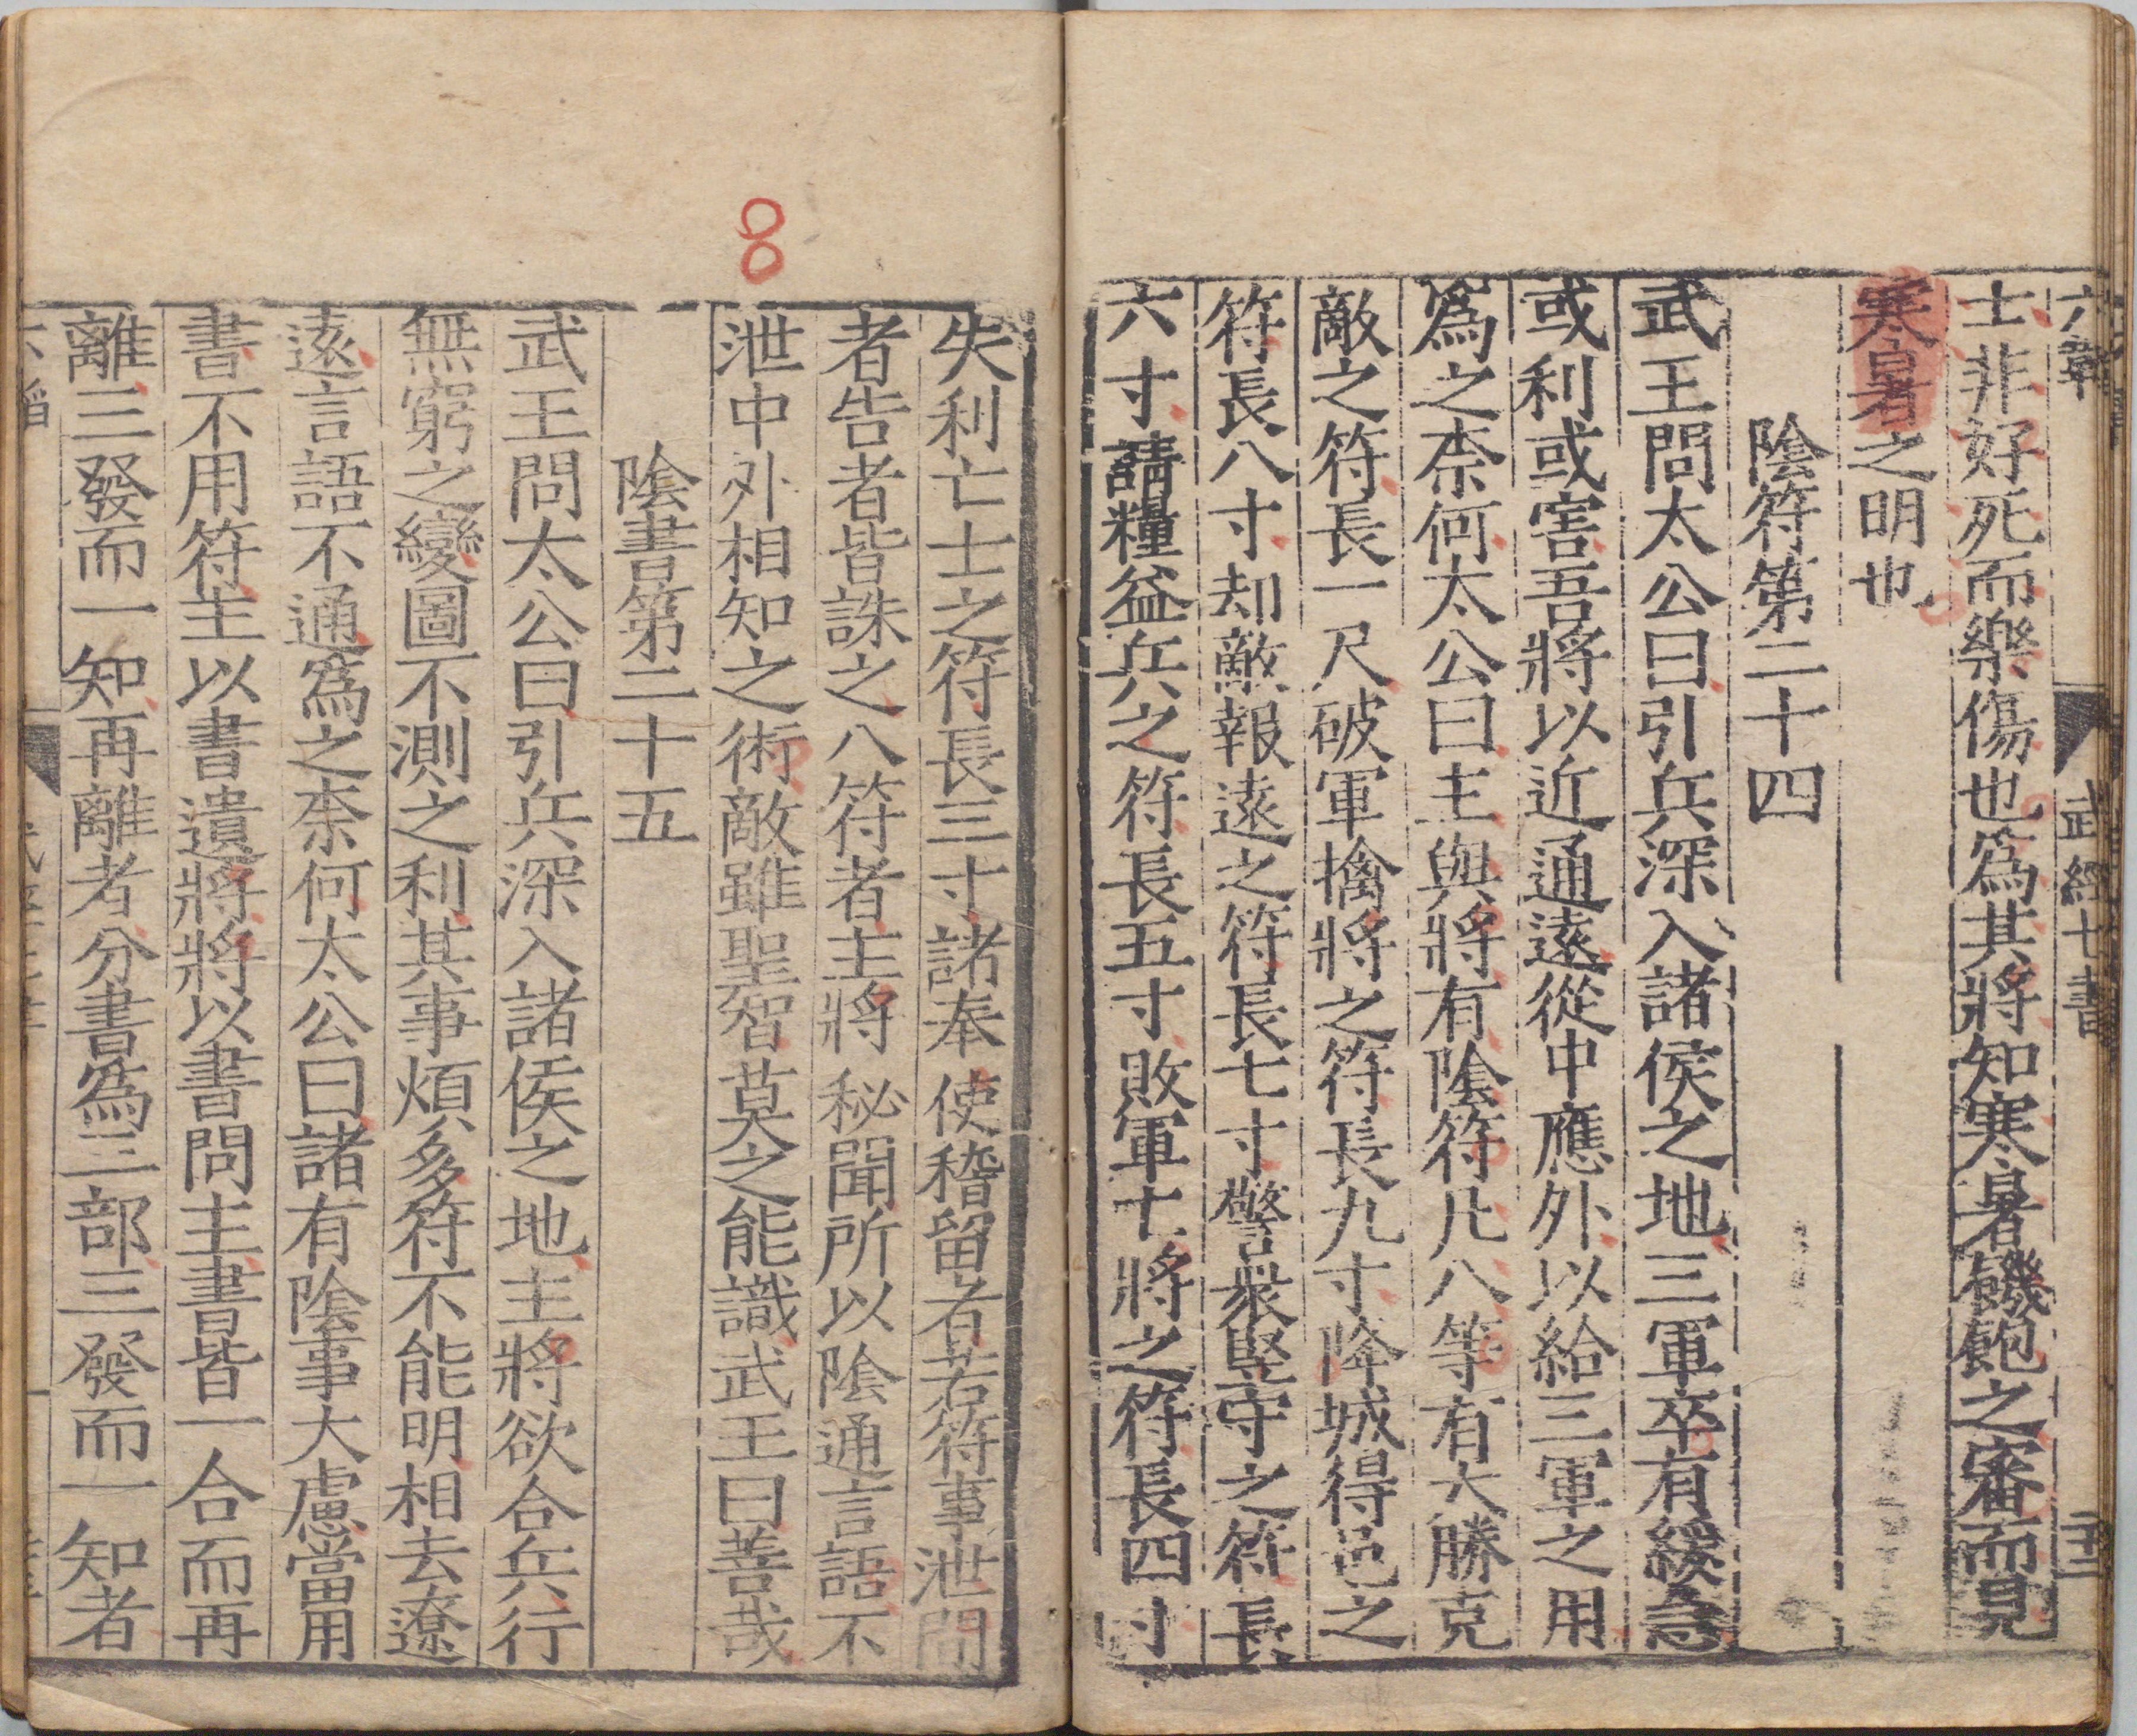 六韜
武經七書
士非好死而樂傷也為其將知寒暑饑飽之審而見
寒暑之明也
陰符第二十四
武王問太公曰引兵深入諸侯之地三軍卒有緩急
或利或害吾將以近通遠從中應外以給三軍之用
為之柰何太公曰主與將有陰符凡八等有大勝克
敵之符長一尺破軍擒將之符長九寸降城得邑之
符長八寸却敵報遠之符長七寸警眾堅守之符長
六寸請糧益兵之符長五寸敗軍亡將之符長四寸
失利亡士之符長三寸諸奉使稽留者若符事泄聞
者告者皆誅之八符者主將秘聞所以陰通言語不
泄中外相知之術敵雖聖智莫之能識武王曰善哉
陰書第二十五
武王問太公曰引兵深入諸侯之地主將欲合兵行
無窮之變圖不測之利其事煩多符不能明相去遼
遠言語不通為之柰何太公曰諸有陰事大慮當用
書不用符主以書遺將將以書問主書皆一合而再
離三發而一知再離者分書為三部三發而一知者